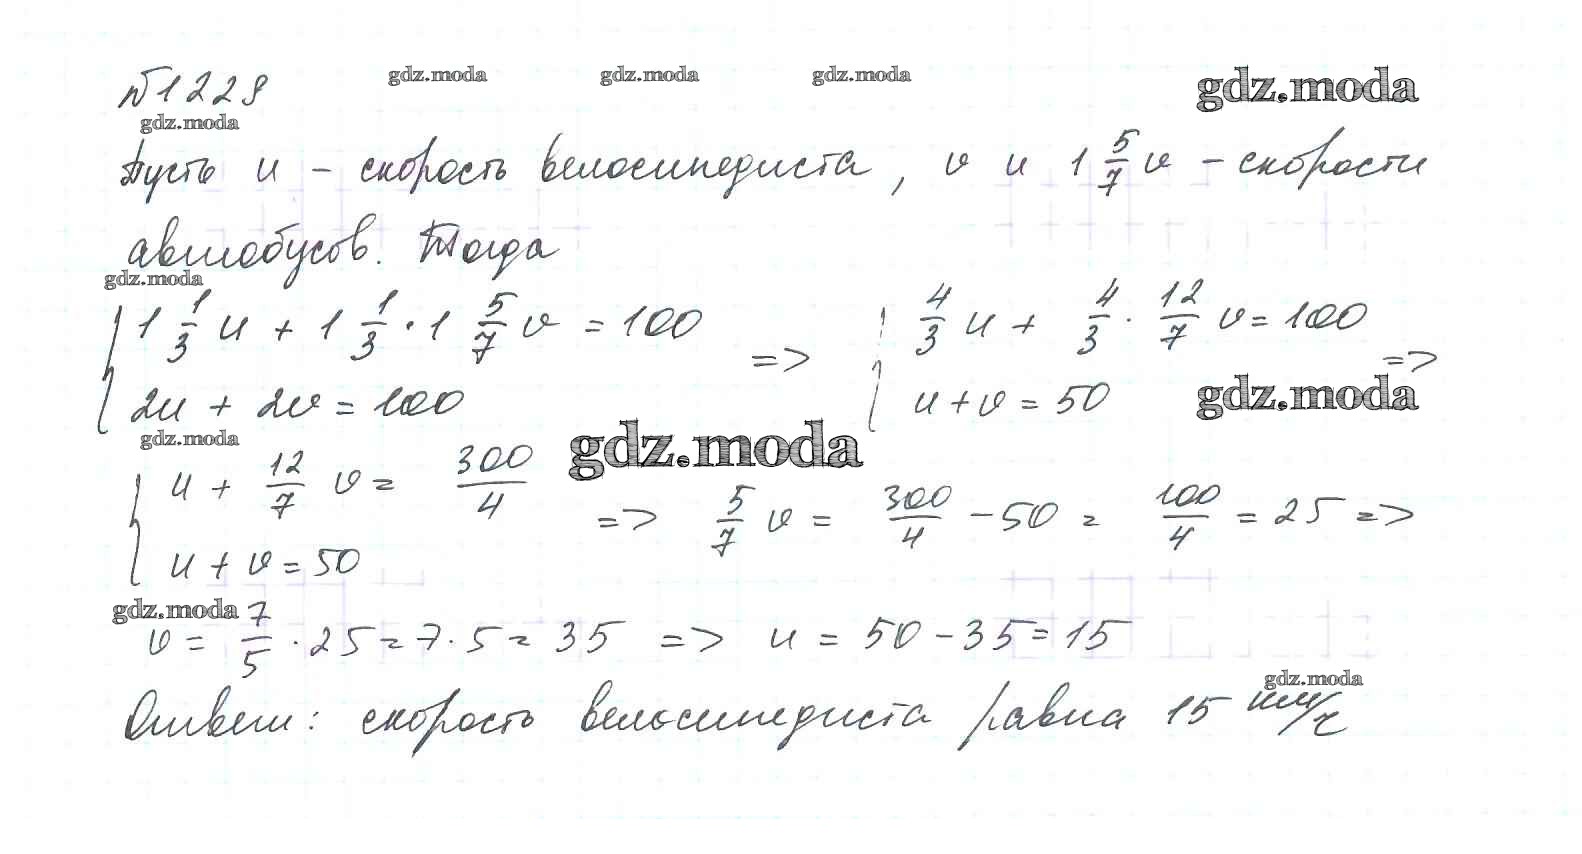 №1228
gdz.moda gdz.moda gdz.moda gdz.moda
gdz.moda
Пусть u – скорость велосипедиста, v и 1 5/7 v – скорости
автобусов. Тогда
gdz.moda
{ 1 1/3 u + 1 1/3 · 1 5/7 v = 100 => { 4/3 u + 4/3 · 12/7 v = 100 =>
2u + 2v = 100 u + v = 50
gdz.moda gdz.moda gdz.moda
{ u + 12/7 v = 300/4 => 5/7 v = 300/4 - 50 = 100/4 = 25 =>
u + v = 50
gdz.moda
v = 7/5 · 25 = 7 · 5 = 35 => u = 50 - 35 = 15
gdz.moda
Ответ: скорость велосипедиста равна 15 км/ч